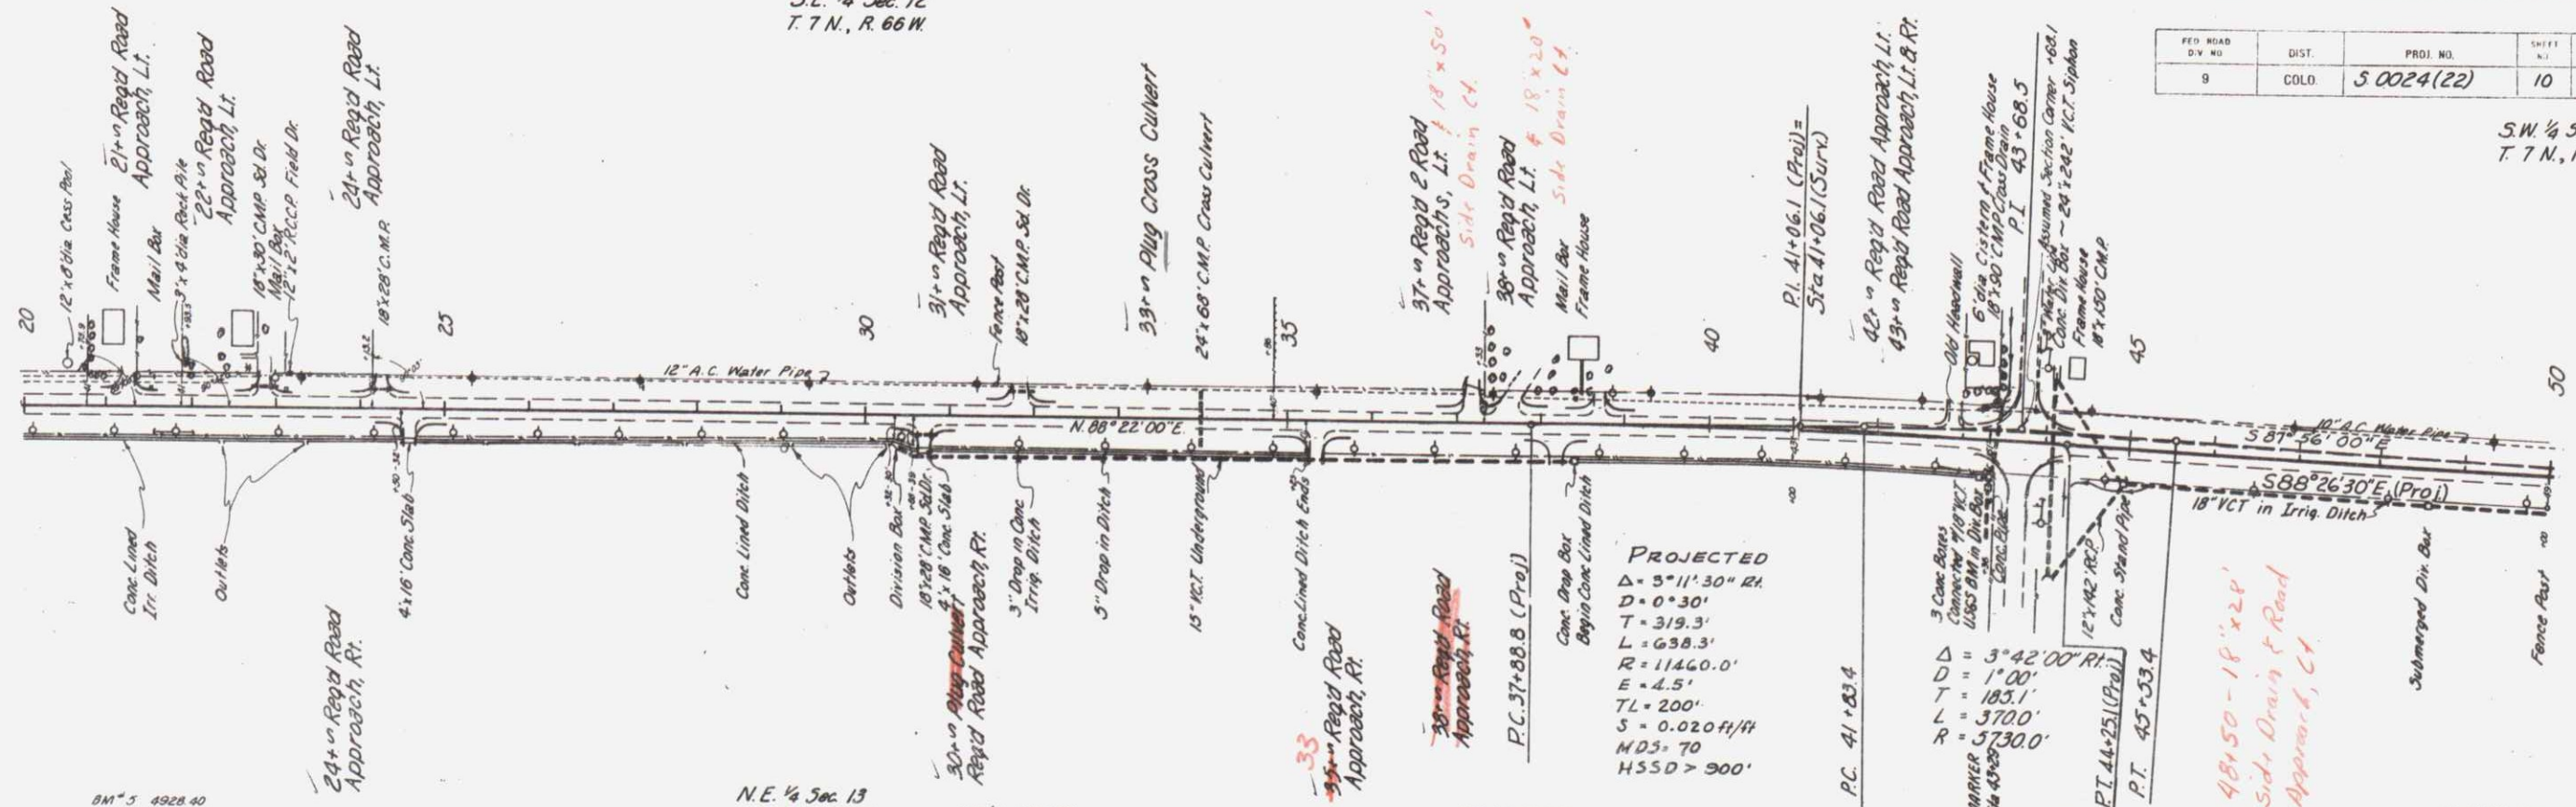 T. 7 N., R. 66 W.
FED ROAD DIV NO
DIST.
PROJ. NO.
SHEET NO
9
COLO.
S 0024(22)
10
S.W. 1/4 S
T. 7 N.,
20
12'x8' dia Cess Pool
Frame House
21+ Req'd Road
Approach, Lt.
Mail Box
3'x4' dia Rock Pile
22+ Req'd Road
Approach, Lt.
18"x30' C.M.P. Sd. Dr.
Mail Box
12"x2' R.C.P. Field Dr.
24+ Req'd Road
Approach, Lt.
18"x28' C.M.P.
25
12" A.C. Water Pipe
30
31+ Req'd Road
Approach, Lt.
Fence Post
18"x28' C.M.P. Sd. Dr.
33+ Plug Cross Culvert
24"x68' C.M.P. Cross Culvert
35
37+ Req'd 2 Road
Approachs, Lt. & 18" x 50'
Side Drain Lt.
38+ Req'd Road
Approach, Lt. & 18" x 20'
Side Drain Lt.
Mail Box
Frame House
40
P.I. 41+06.1 (Proj)=
Sta 41+06.1 (Surv.)
42+ Req'd Road Approach, Lt.
43+ Req'd Road Approach, Lt. & Rt.
Old Headwall
6' dia Cistern & Frame House
18"x90' CMP Cross Drain
P.I. 43+68.5
Assumed Section Corner +60.1
Conc. Div. Box ~ 24"x242' V.C.T. Siphon
Frame House
18"x150' C.M.P.
45
50
N. 88° 22' 00" E.
10" A.C. Water Pipe
S 87° 56' 00" E
S 88° 26' 30" E (Proj.)
18" VCT in Irrig. Ditch
Conc. Lined
Irr. Ditch
Outlets
24+ Req'd Road
Approach, Rt.
4'x16' Conc. Slab
Conc Lined Ditch
Outlets
Division Box
18"x28' C.M.P. Sd. Dr.
4' x 16' Conc Slab
30+ Plug Culvert
Req'd Road Approach, Rt.
3" Drop in Conc
Irrig. Ditch
5" Drop in Ditch
15" V.C.T. Underground
Conc. Lined Ditch Ends
33
35+ Req'd Road
Approach, Rt.
38+ Req'd Road
Approach, Rt
P.C. 37+88.8 (Proj)
Conc. Drop Box
Begin Conc Lined Ditch
PROJECTED
Δ = 3° 11' 30" Rt.
D = 0° 30'
T = 319.3'
L = 638.3'
R = 11460.0'
E = 4.5'
TL = 200'
S = 0.020 ft/ft
MDS = 70
HSSD > 900'
P.C. 41+83.4
3 Conc Boxes
Connected w/18" VCT
USGS BM in Div. Box
Conc. Pipe
Δ = 3° 42' 00" Rt.
D = 1° 00'
T = 185.1'
L = 370.0'
R = 5730.0'
12"x142' RCP
Conc. Stand Pipe
P.T. 44+25.1 (Proj)
P.T. 45+53.4
48+50 - 18" x 28'
Side Drain & Road
Approach, Lt
Submerged Div. Box
Fence Post
BM #5 4928.40
N.E. 1/4 Sec. 13